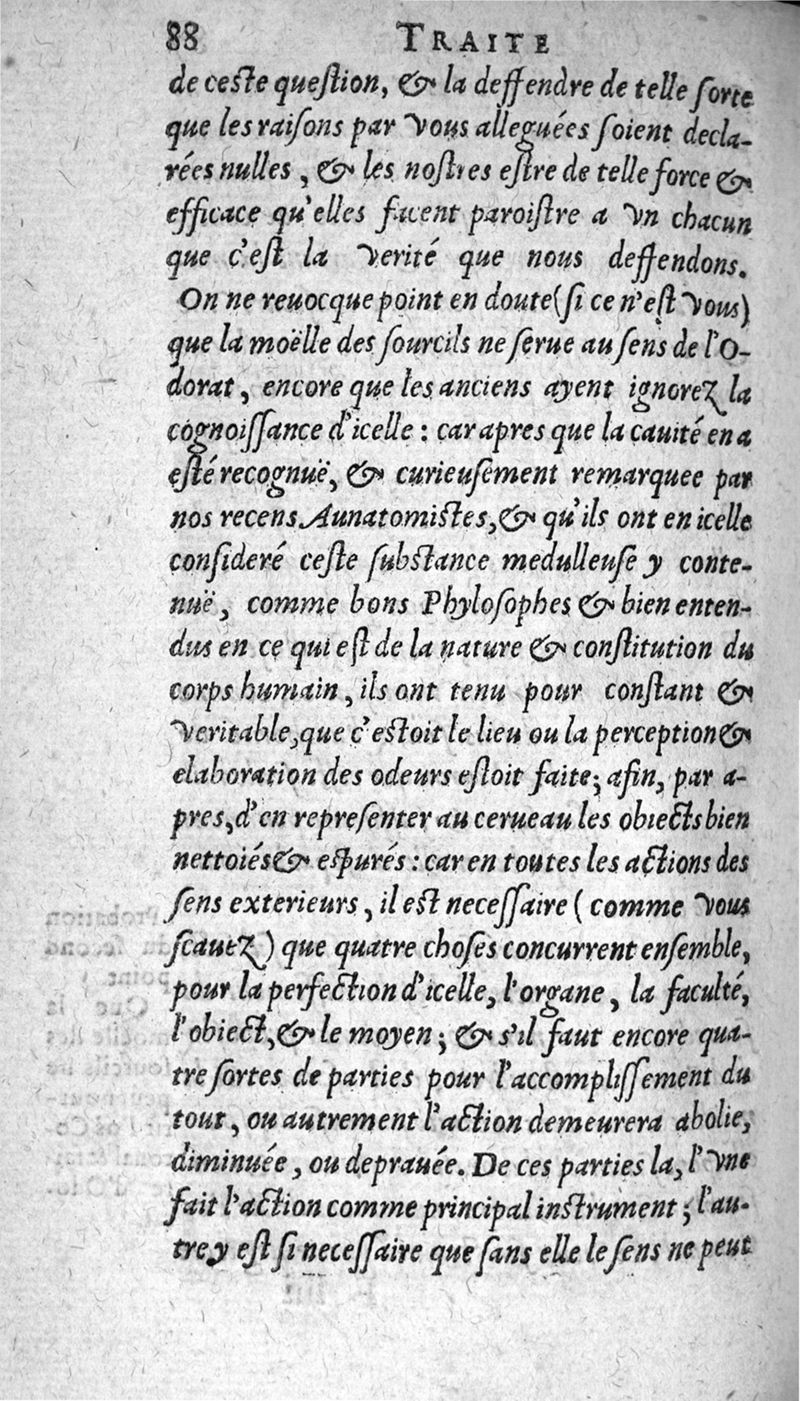 88 TRAITE
de ceste question, & la deffendre de telle sorte
que les raisons par vous alleguées soient decla-
rées nulles, & les nostres estre de telle force &
efficace qu'elles facent paroistre a vn chacun
que c'est la verité que nous deffendons.
On ne reuocque point en doute (si ce n'est vous)
que la moëlle des sourcils ne serue au sens de l'O-
dorat, encore que les anciens ayent ignorez la
cognoissance d'icelle : car apres que la cauité en a
esté recognuë, & curieusement remarquee par
nos recens Aunatomistes, & qu'ils ont en icelle
consideré ceste substance medulleuse y conte-
nuë, comme bons Phylosophes & bien enten-
dus en ce qui est de la nature & constitution du
corps humain, ils ont tenu pour constant &
veritable, que c'estoit le lieu ou la perception &
elaboration des odeurs estoit faite; afin, par a-
pres, d'en representer au cerueau les obiects bien
nettoiés & espurés : car en toutes les actions des
sens exterieurs, il est necessaire (comme vous
scauez) que quatre choses concurrent ensemble,
pour la perfection d'icelle, l'organe, la faculté,
l'obiect, & le moyen ; & s'il faut encore qua-
tre sortes de parties pour l'accomplissement du
tout, ou autrement l'action demeurera abolie,
diminuée, ou deprauée. De ces parties la, l'vne
fait l'action comme principal instrument ; l'au-
tre y est si necessaire que sans elle le sens ne peut